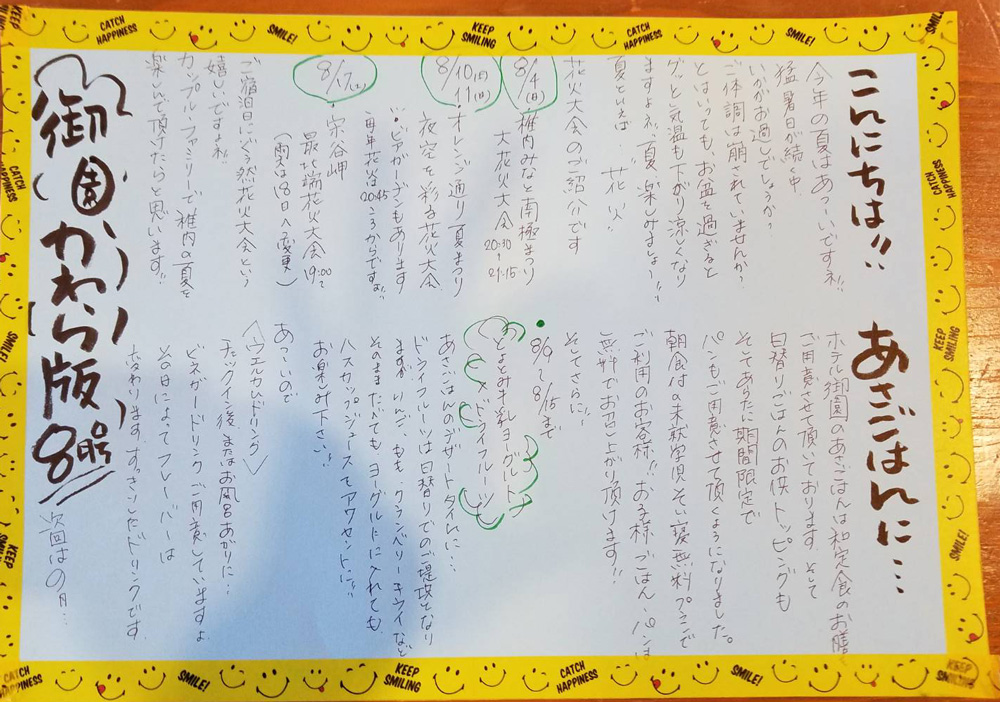 こんにちは!!
今年の夏はあつーいですネ!!
猛暑日が続く中
いかがお過しでしょうか?
ご体調は崩されていませんか?
とはいっても、お盆を過ぎると
グッと気温も下がり涼しくなり
ますよネ!! 夏、楽しみましょー!!
夏といえば "花火"
花火大会のご紹介です
8/4(日)・稚内みなと南極まつり
大花火大会 20:30~21:15
8/10(土)11(日)・オレンジ通り夏まつり
夜空を彩る花火大会
…ビアガーデンもあります
毎年花火は20:45ころからですョ!!
8/17(土)・宗谷岬
最北端花火大会 19:00~
(雨天は18日へ変更)
ご宿泊日にぐう然花火大会という
嬉しいですよネ!!
カップル・ファミリーで稚内の夏を
楽しいで頂けたらと思います!!
御園かわら版8月号
あさごはんに…
ホテル御園のあさごはんは和定食のお膳を
ご用意させて頂いております。そして
日替りごはんのお供、トッピングも
そしてあらたに期間限定で
パンもご用意させて頂くようになりました。
朝食は。未就学児、そい寝無料プランで
ご利用のお客様!! お子様ごはん・パンは
無料でお召し上がり頂けます!!
そしてさらに!!
・8/9~8/15まで
おとよとみ牛乳ヨーグルト×ドライフルーツ
あさごはんのデザートタイムに…
ドライフルーツは日替りでのご提供となり
ますが りんご、もも、クランベリー、キウイなど
そのままたべても ヨーグルトに入れても
ハスカップジュースでアクセントに!!
お楽しみ下さい!!
あつーいので
〈ウエルカムドリンク〉
チェックイン後 またはお風呂あがりに…
ビネガードリンク ご用意していますョ
その日によってフレーバーは
変わります。すっきりしたドリンクです。
次回は9月…
CATCH HAPPINESS
SMILE!
KEEP SMILING